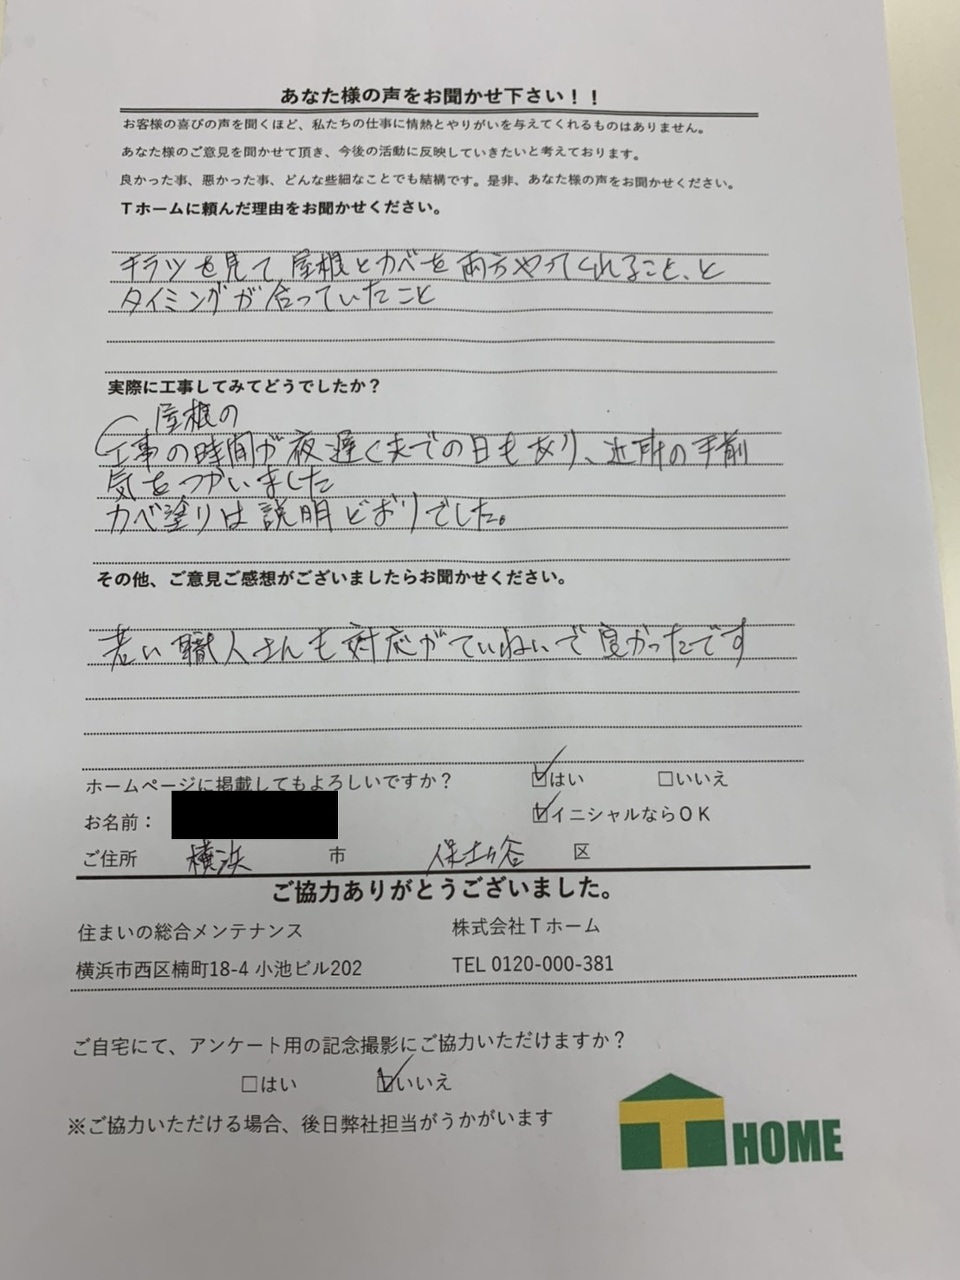 あなた様の声をお聞かせ下さい！！
お客様の喜びの声を聞くほど、私たちの仕事に情熱とやりがいを与えてくれるものはありません。
あなた様のご意見を聞かせて頂き、今後の活動に反映していきたいと考えております。
良かった事、悪かった事、どんな些細なことでも結構です。是非、あなた様の声をお聞かせください。
Ｔホームに頼んだ理由をお聞かせください。
チラシを見て、屋根とカベを両方やってくれること、と
タイミングが合っていたこと
実際に工事してみてどうでしたか？
屋根の
工事の時間が夜遅くまでの日もあり、近所の手前
気をつかいました
カベ塗りは説明どおりでした。
その他、ご意見ご感想がございましたらお聞かせください。
若い職人さんも対応がていねいで良かったです
ホームページに掲載してもよろしいですか？ ☑はい □いいえ
お名前： ☑イニシャルならＯＫ
ご住所 横浜 市 保土ヶ谷 区
ご協力ありがとうございました。
住まいの総合メンテナンス 株式会社Ｔホーム
横浜市西区楠町18-4 小池ビル202 TEL 0120-000-381
ご自宅にて、アンケート用の記念撮影にご協力いただけますか？
□はい ☑いいえ
※ご協力いただける場合、後日弊社担当がうかがいます
T HOME